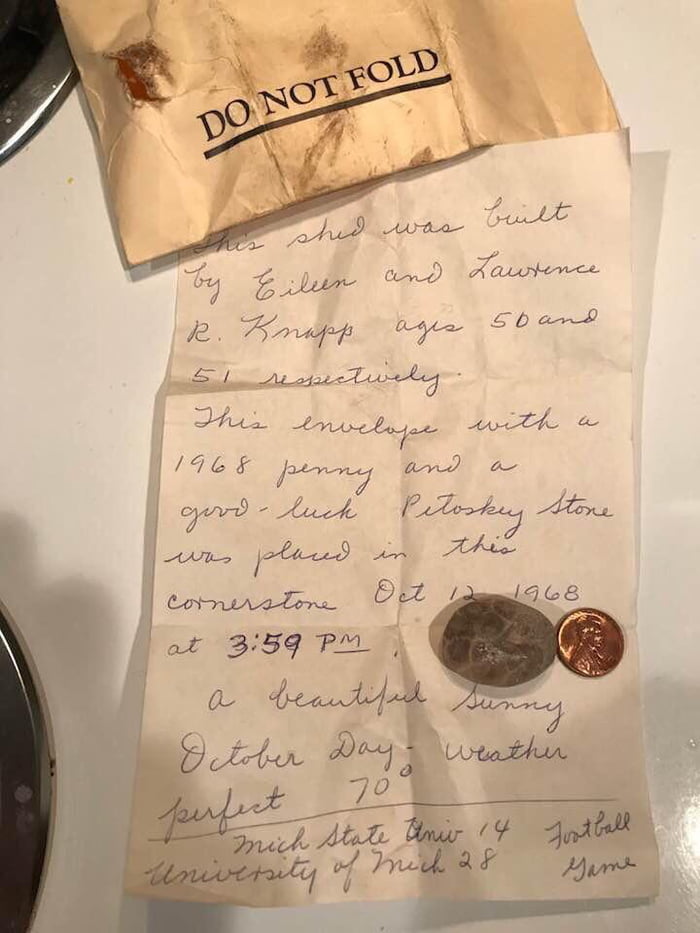 DO NOT FOLD
This shed was built
by Eileen and Lawrence
R. Knapp ages 50 and
51 respectively.
This envelope with a
1968 penny and a
good-luck Petoskey Stone
was placed in this
cornerstone Oct 12 1968
at 3:59 PM.
a beautiful Sunny
October Day - weather
perfect 70°
Mich State Univ 14 Football
University of Mich 28 Game